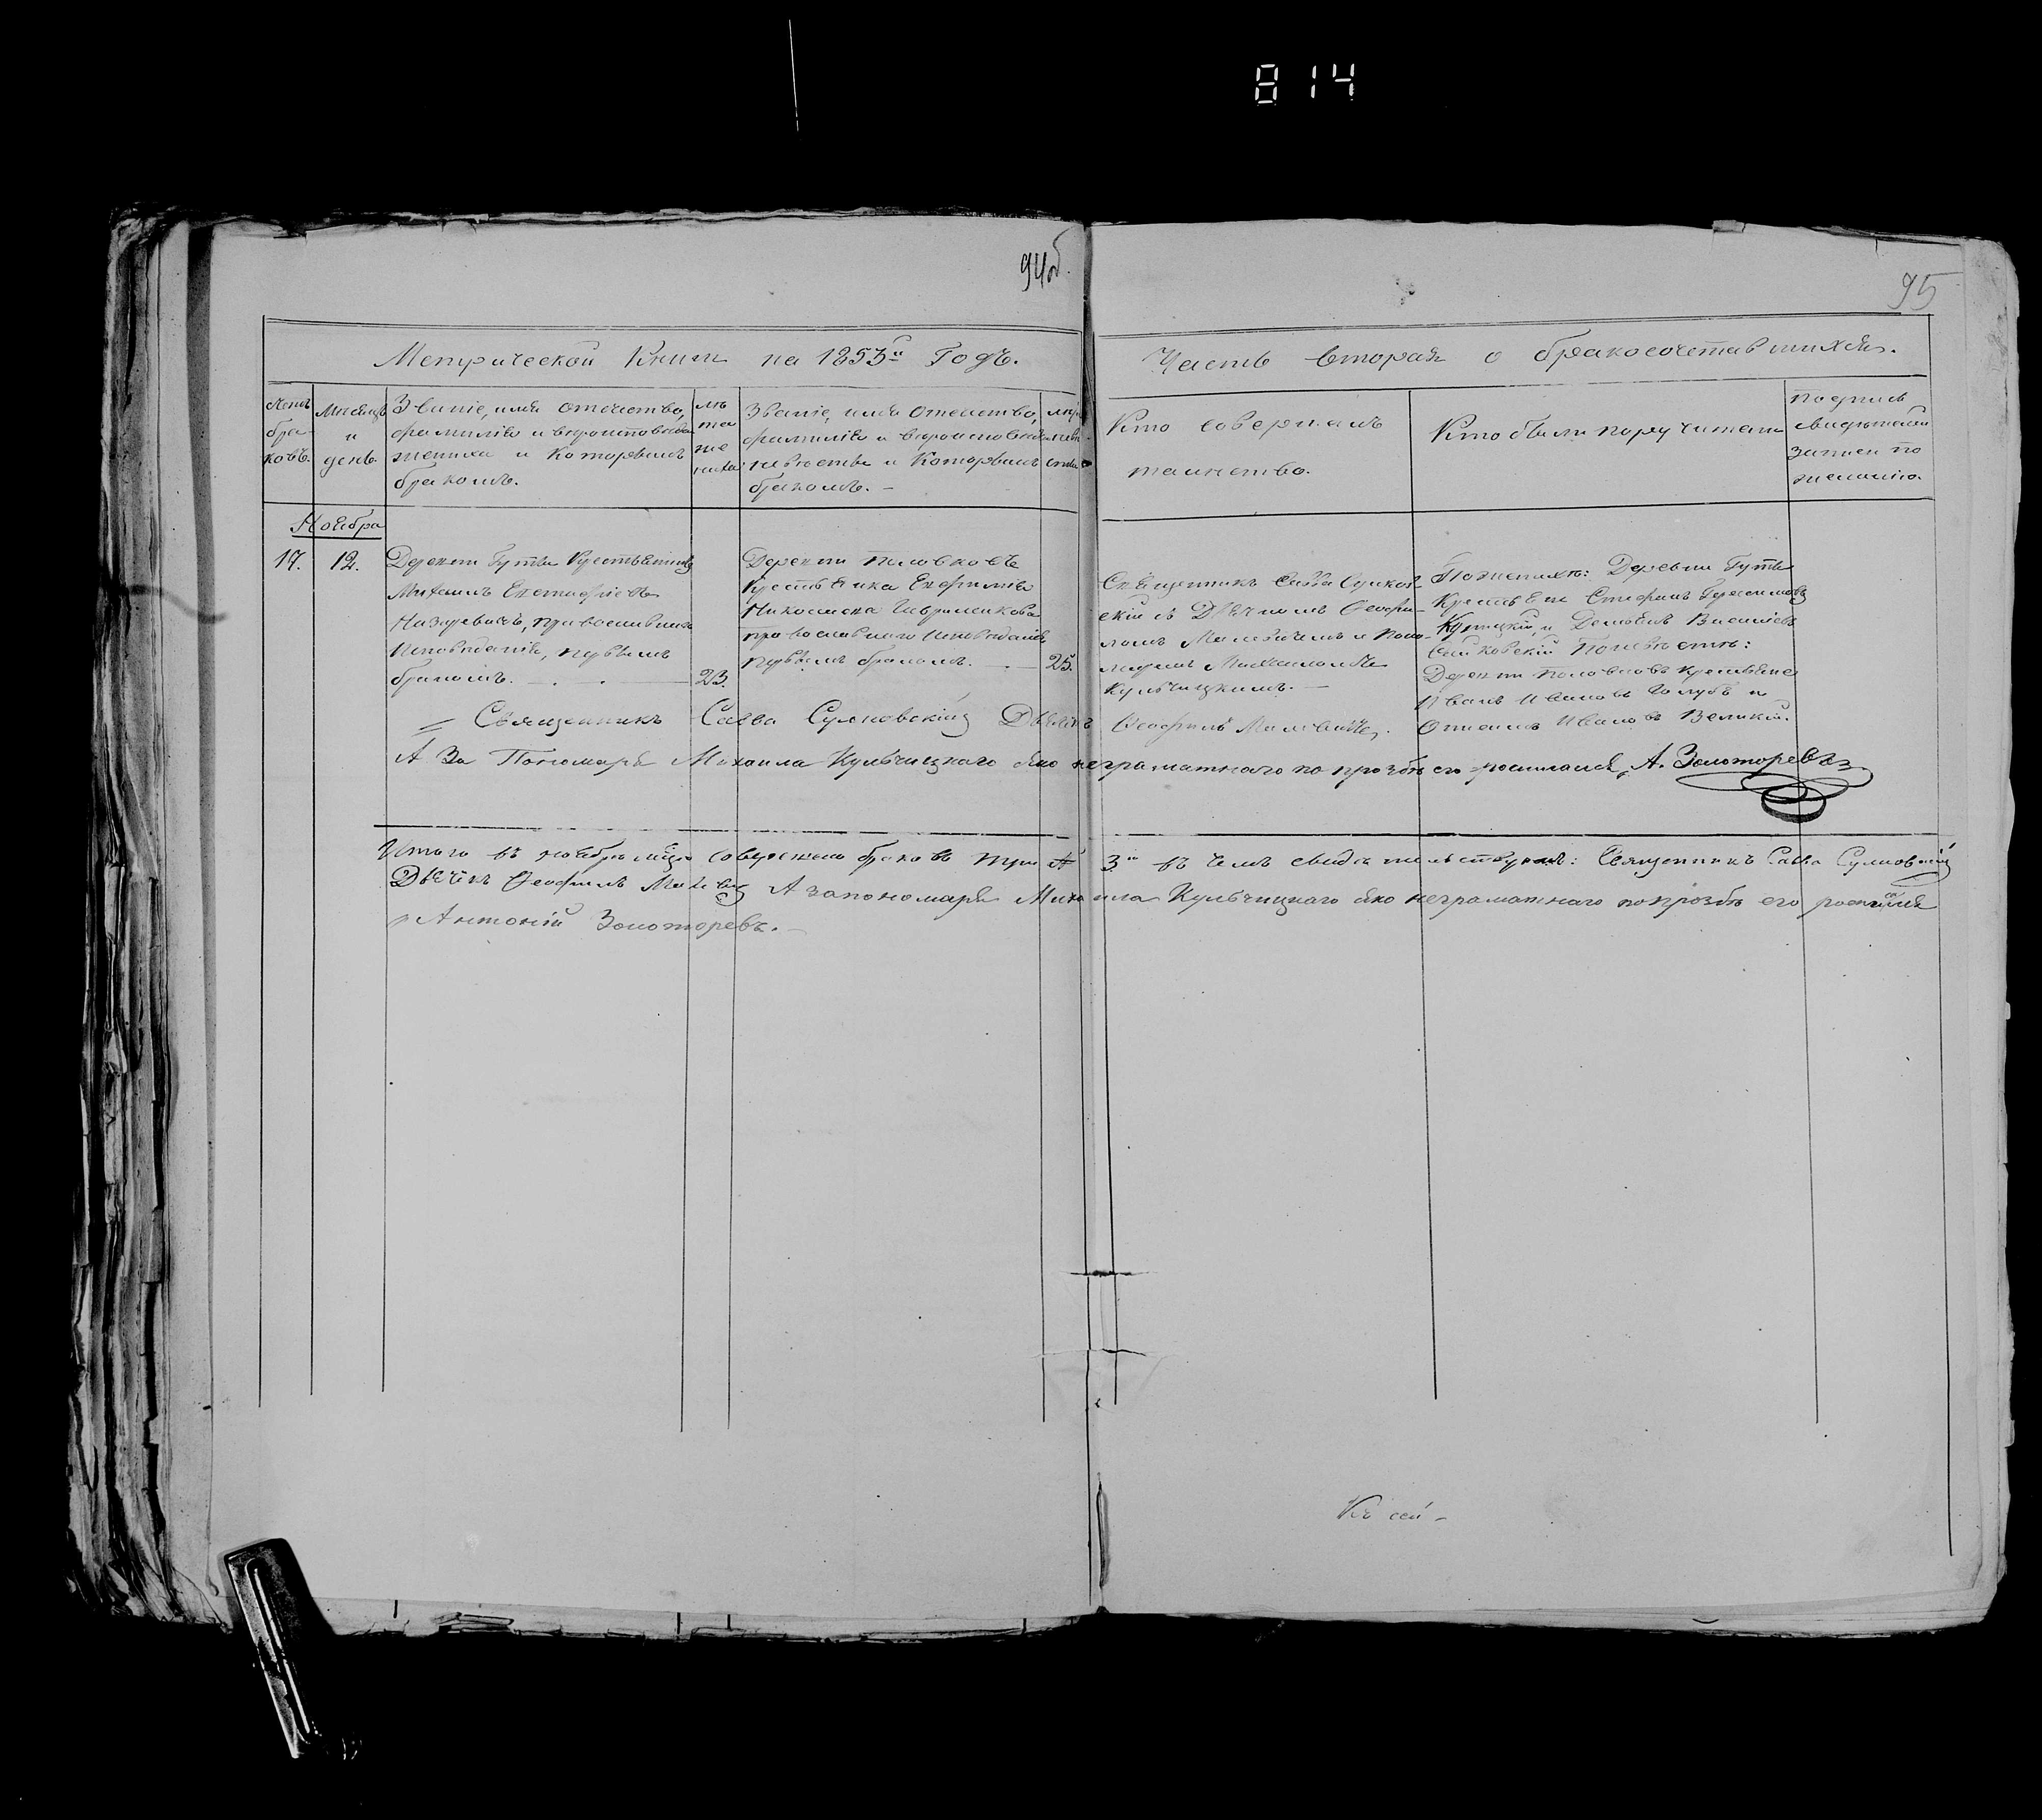 814
94об.
95
Метрической Книги на 1853й Годъ.
Часть вторая о бракосочетавшихся.
бра-
ковъ.
Мѣсяцъ
и
день.
Званіе, имя отчество,
фамилія и вѣроисповѣда
жениха и Которымъ
бракомъ.
лѣ
та
же
ниха
Званіе, имя Отчество,
фамилія и вѣроисповѣда
невѣсты и Которымъ
бракомъ. —
Кто совершалъ
таинство.
Кто были поручители
подпись
свидѣтелей
записи по
желанію.
Ноября
17. 12.
Деревни Гуты Крестьянинъ
Михаилъ
Назаревичъ, православнаго
Исповѣданія, первымъ
бракомъ. — 23.
Деревни
Крестьянка Евфимія
Никомена Гавриликова
православнаго Исповѣданія
первымъ бракомъ. — 25.
Священникъ Савва Сулков
скій съ Дьячкомъ Феофи-
ломъ Малевичемъ и Поно-
маремъ Михаиломъ
Кульчицкимъ. —
По женихѣ: Деревни Гуты
Крестьяне Стефанъ Герасимовъ
и Демьянъ Васильевъ
По невѣстѣ:
Деревни крестьяне
Иванъ Ивановъ Голубъ и
Ивановъ Великій.
Священникъ Савва Сулковскій Дьячекъ Феофилъ Малевичъ.
А За Пономаря Михаила Кульчицкаго яко неграматнаго по прозбѣ его росписался А. Золоторевъ
Итого въ ноябрѣ мцѣ совершено браковъ три 3. въ чемъ свидѣтельствуемъ: Священникъ Савва Сулковскій
Дьячекъ Феофилъ Малевичъ А за пономаря Михаила Кульчицкаго яко неграматнаго по прозбѣ его росписался
Антоній Золоторевъ. —
Къ сей —